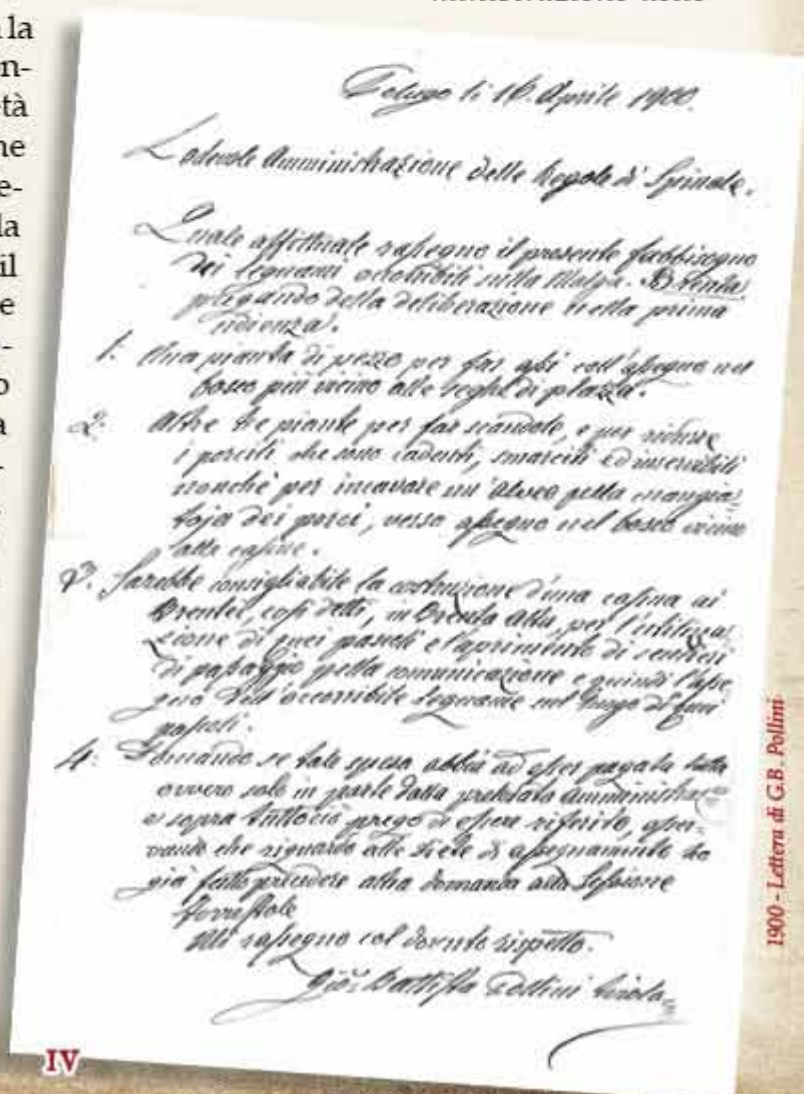 la
n-
età
ne
e-
la
il
e
o
a
Pelugo li 16. Aprile 1900.
Lodevole Amministrazione delle Regole di Spinale.
Quale affittuale rassegno il presente fabbisogno
dei legnami occorribili sulla Malga Brenta
pregando della deliberazione nella prima
udienza.
1. Una pianta di pezzo per far assi coll'assegno nel
bosco più vicino alle seghe di plazza.
2. Altre tre piante per far scandole, e per ridurre
i porcili che sono cadenti, smarciti ed inservibili
nonchè per incavare un'albeo pella mangia-
toja dei porci, verso assegno nel bosco vicino
alle casine.
3. Sarebbe consigliabile la costruzione d'una casina ai
Brentei, così detti, in Brenta Alta, per
di quei pascoli e l'aprimento di sentieri
di passaggio pella comunicazione e quindi l'asse-
gno dell'occorribile legname sul luogo di quei
pascoli.
4. Domando se tale spesa abbia ad esser pagata tutta
ovvero solo in parte dalla prelodata Amministraz
e sopra tuttociò prego di essere riferito, osser-
vando che riguardo alle di assegnamento ho
già fatto precedere altra domanda alla Sessione
Forestale
Mi rassegno col dovuto rispetto.
Gio: Battista Pollini
1900 - Lettera di G.B. Pollini
IV